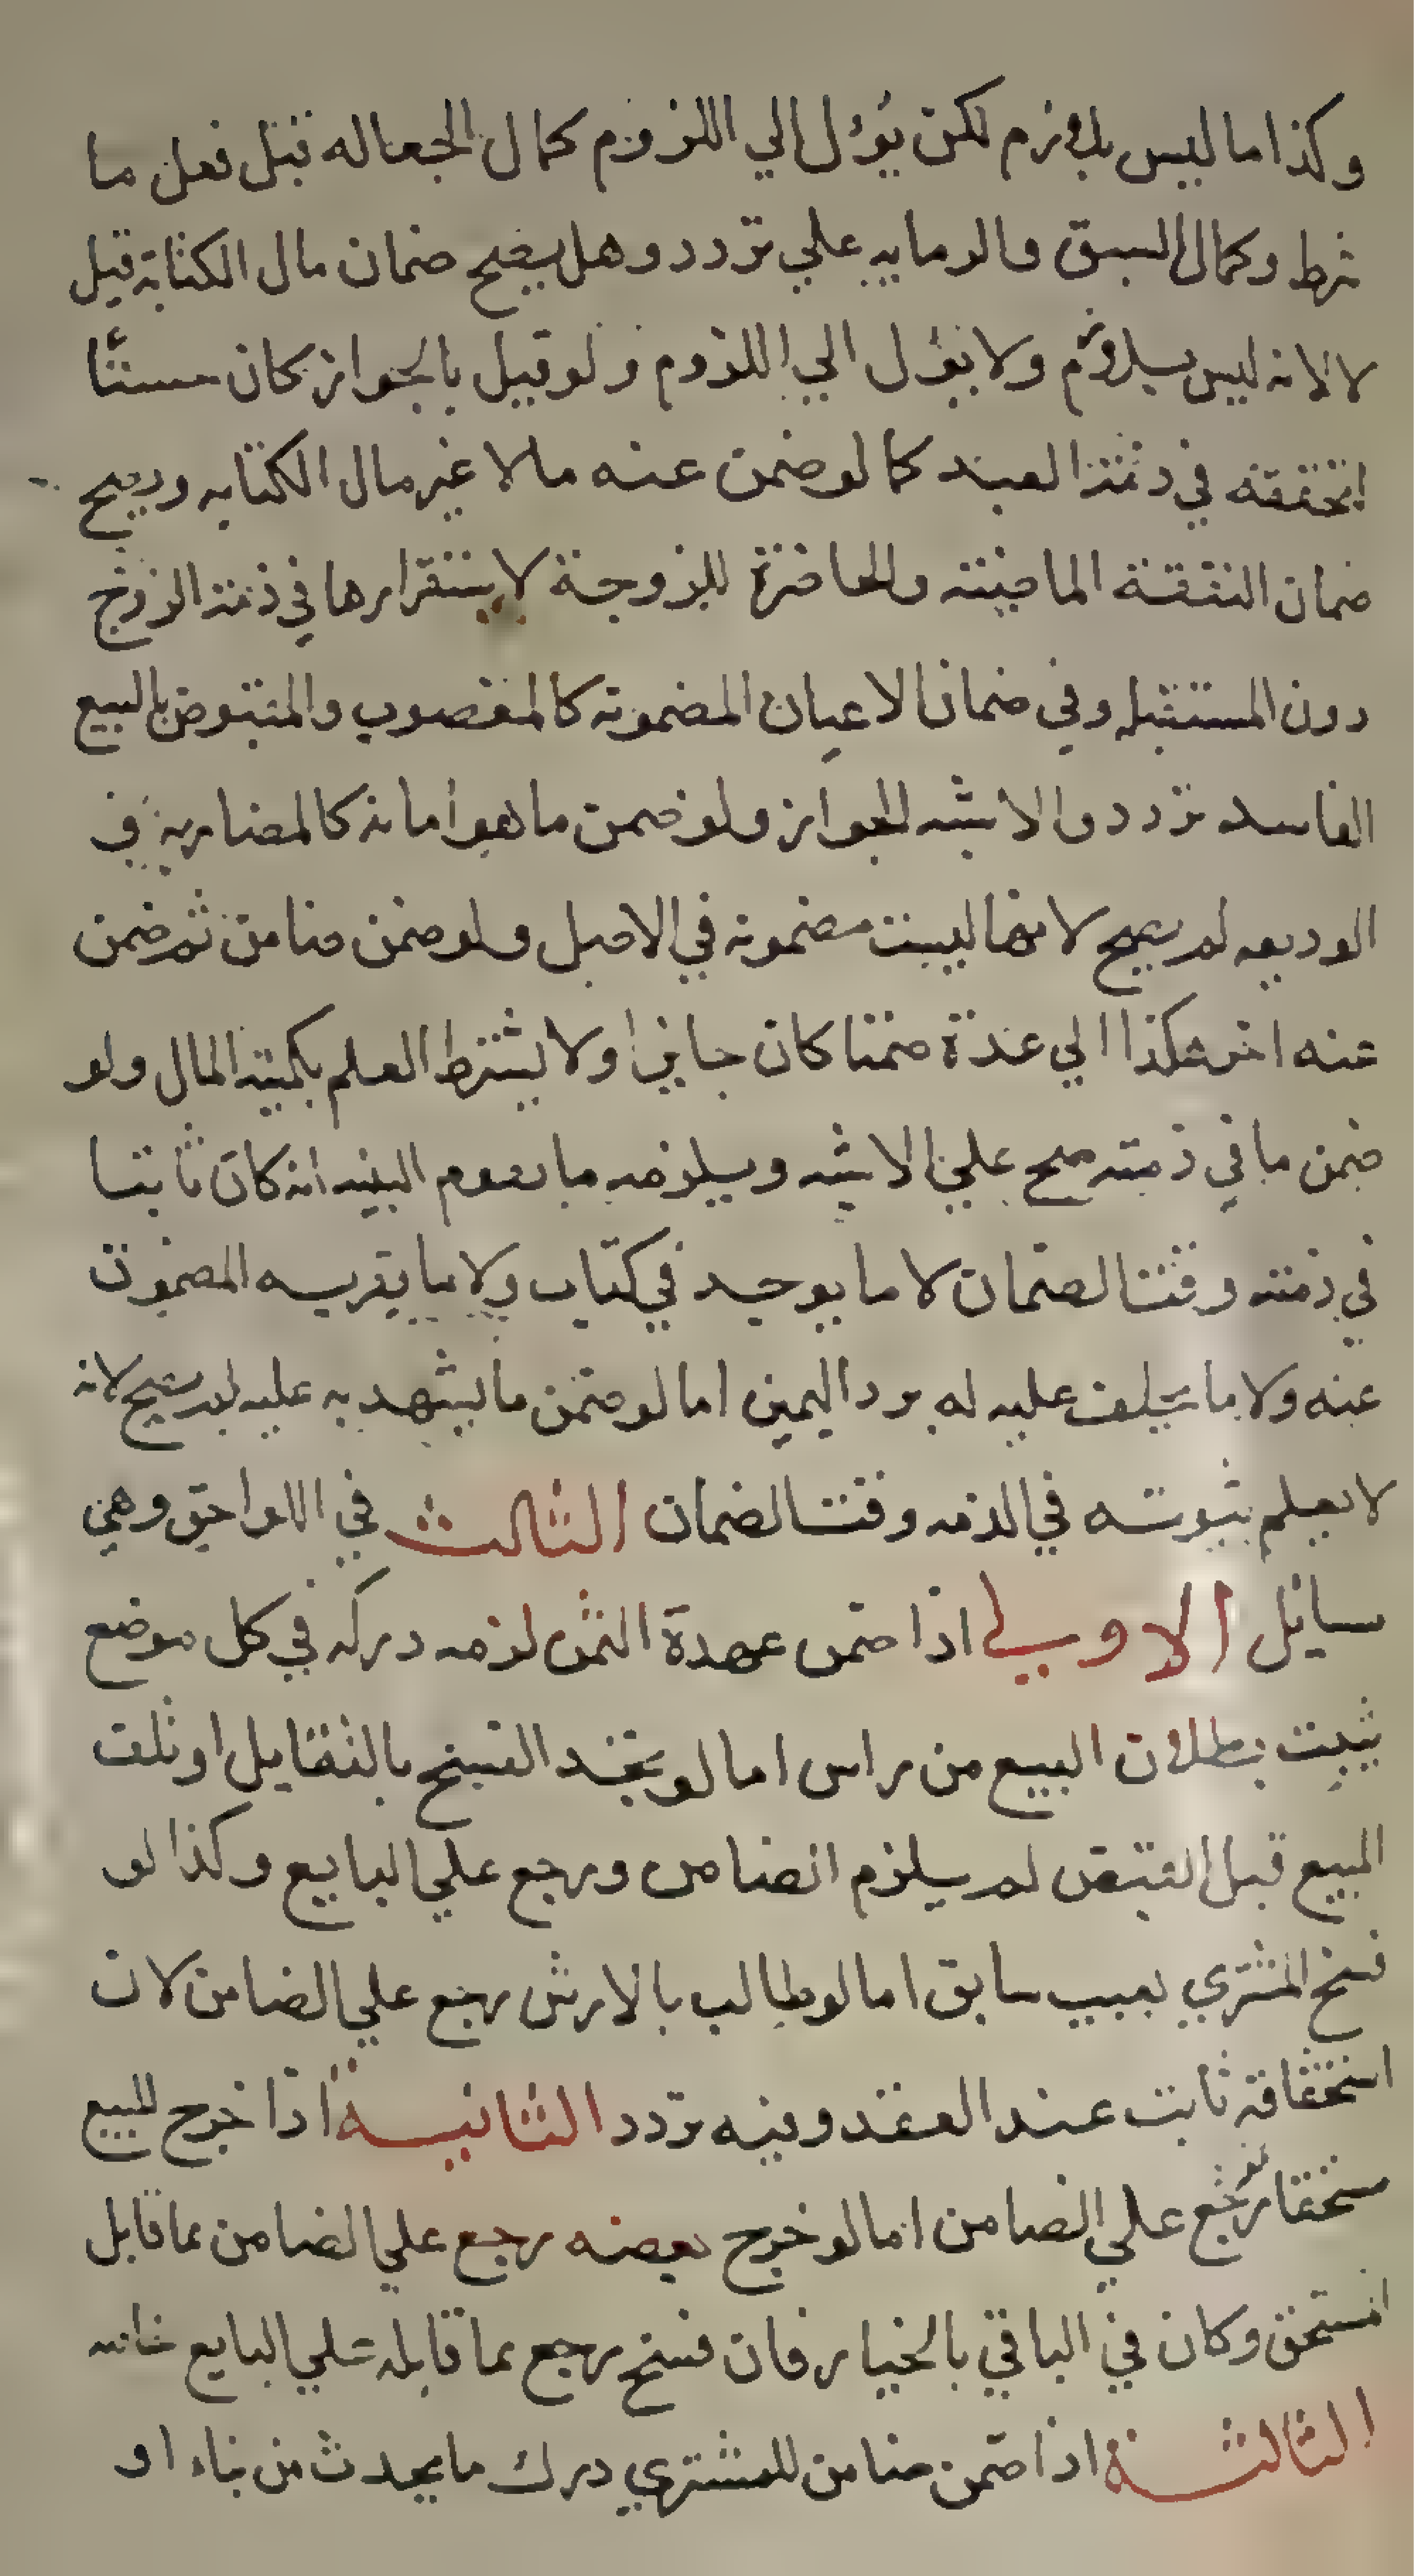 وكذا ما ليس بلازم لكن يؤل الي اللزوم كمال الجعاله قبل فعل ما
شرط وكمال السبق والرمايه علي تردد وهل يصح ضمان مال الكتابة قيل
لا لانه ليس بلازم ولا يؤل الي اللزوم ولو قيل بالجواز كان حسنًا
لتحققه في ذمة العبد كما لو ضمن عنه مالا غير مال الكتابه ويصح
ضمان النفقة الماضية والحاضرة للزوجة لاستقرارها في ذمة الزوج
دون المستقبله وفي ضمان الاعيان المضمونه كالمغصوب والمقبوض بالبيع
الفاسد تردد والاشبه الجواز ولو ضمن ما هو امانه كالمضاربه و
الوديعه لم يصح لانها ليست مضمونه في الاصل ولو ضمن ضامن ثم ضمن
عنه اخر هكذا الي عدة ضمنا كان جايزا ولا يشترط العلم بكمية المال ولو
ضمن ما في ذمته صح علي الاشبه ويلزمه ما تقوم البينه انه كان ثابتا
في ذمته وقت الضمان لا ما يوجد في كتاب ولا ما يقر به المضمون
عنه ولا ما يحلف عليه له برد اليمين اما لو ضمن ما يشهد به عليه لم يصح لانه
لا يعلم بثبوته في الذمه وقت الضمان الثالث في اللواحق وهي
سايل الاولي اذا ضمن عهدة الثمن لزمه دركه في كل موضع
يثبت بطلان البيع من راس اما لو تجدد الفسخ بالتقايل او تلف
المبيع قبل القبض لم يلزم الضامن ورجع علي البايع وكذا لو
فسخ المشتري بعيب سابق اما لو طالب بالارش رجع علي الضامن لان
استحقاقه ثابت عند العقد وفيه تردد الثانية اذا خرج المبيع
مستحقا رجع علي الضامن اما لو خرج بعضه رجع علي الضامن بما قابل
المستحق وكان في الباقي بالخيار فان فسخ رجع بما قابله علي البايع خاصه
الثالثة اذا ضمن ضامن للمشتري درك ما يحدث من بناء او